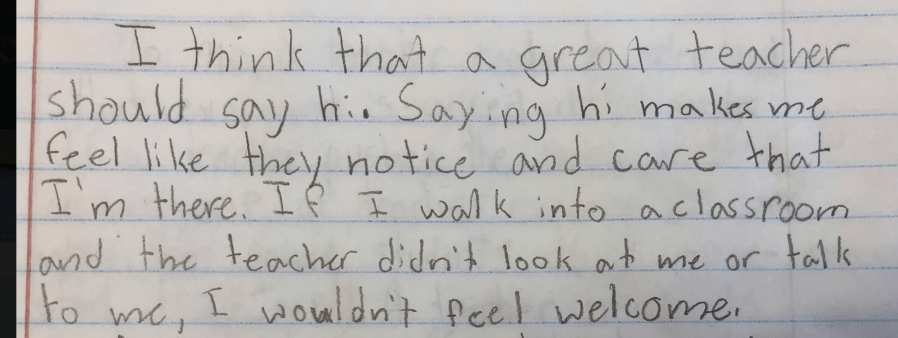 I think that a great teacher
should say hi. Saying hi makes me
feel like they notice and care that
I'm there. If I walk into a classroom
and the teacher didn't look at me or talk
to me, I wouldn't feel welcome.